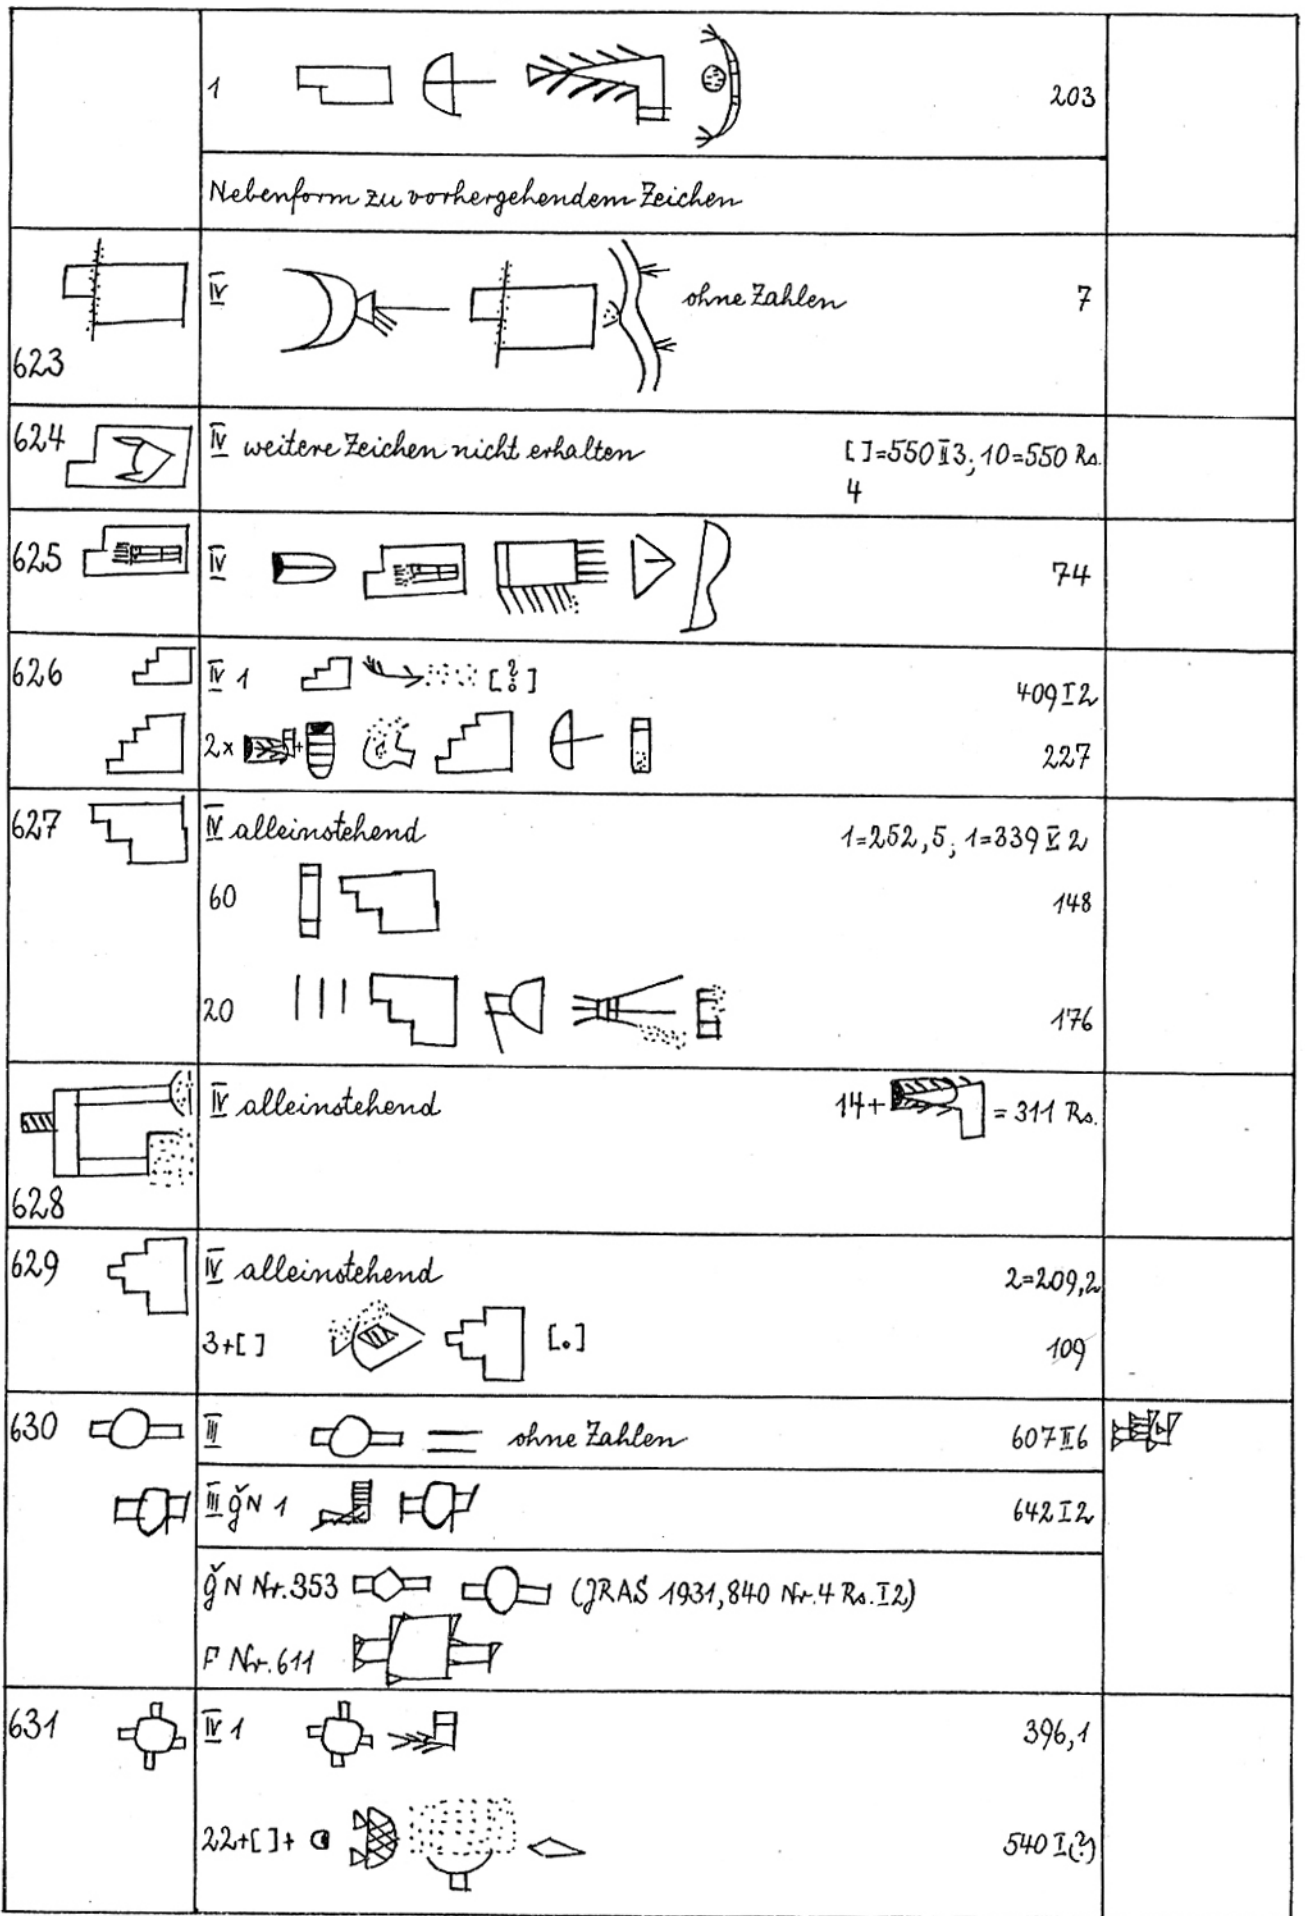 1 203
Nebenform zu vorhergehendem Zeichen
623 IV ohne Zahlen 7
624 IV weitere Zeichen nicht erhalten []=550 II 3; 10=550 Rs.
4
625 IV 74
626 IV 1 [?] 409 I 2
2x + 227
627 IV alleinstehend 1=252,5; 1=339 V 2
60 148
20 176
628 IV alleinstehend 14+ = 311 Rs.
629 IV alleinstehend 2=209,2
3+[] [.] 109
630 III ohne Zahlen 607 II 6
III ǧN 1 642 I 2
ǧN Nr. 353 (JRAS 1931, 840 Nr. 4 Rs. I 2)
F Nr. 611
631 IV 1 396,1
22+[]+ 540 I(?)